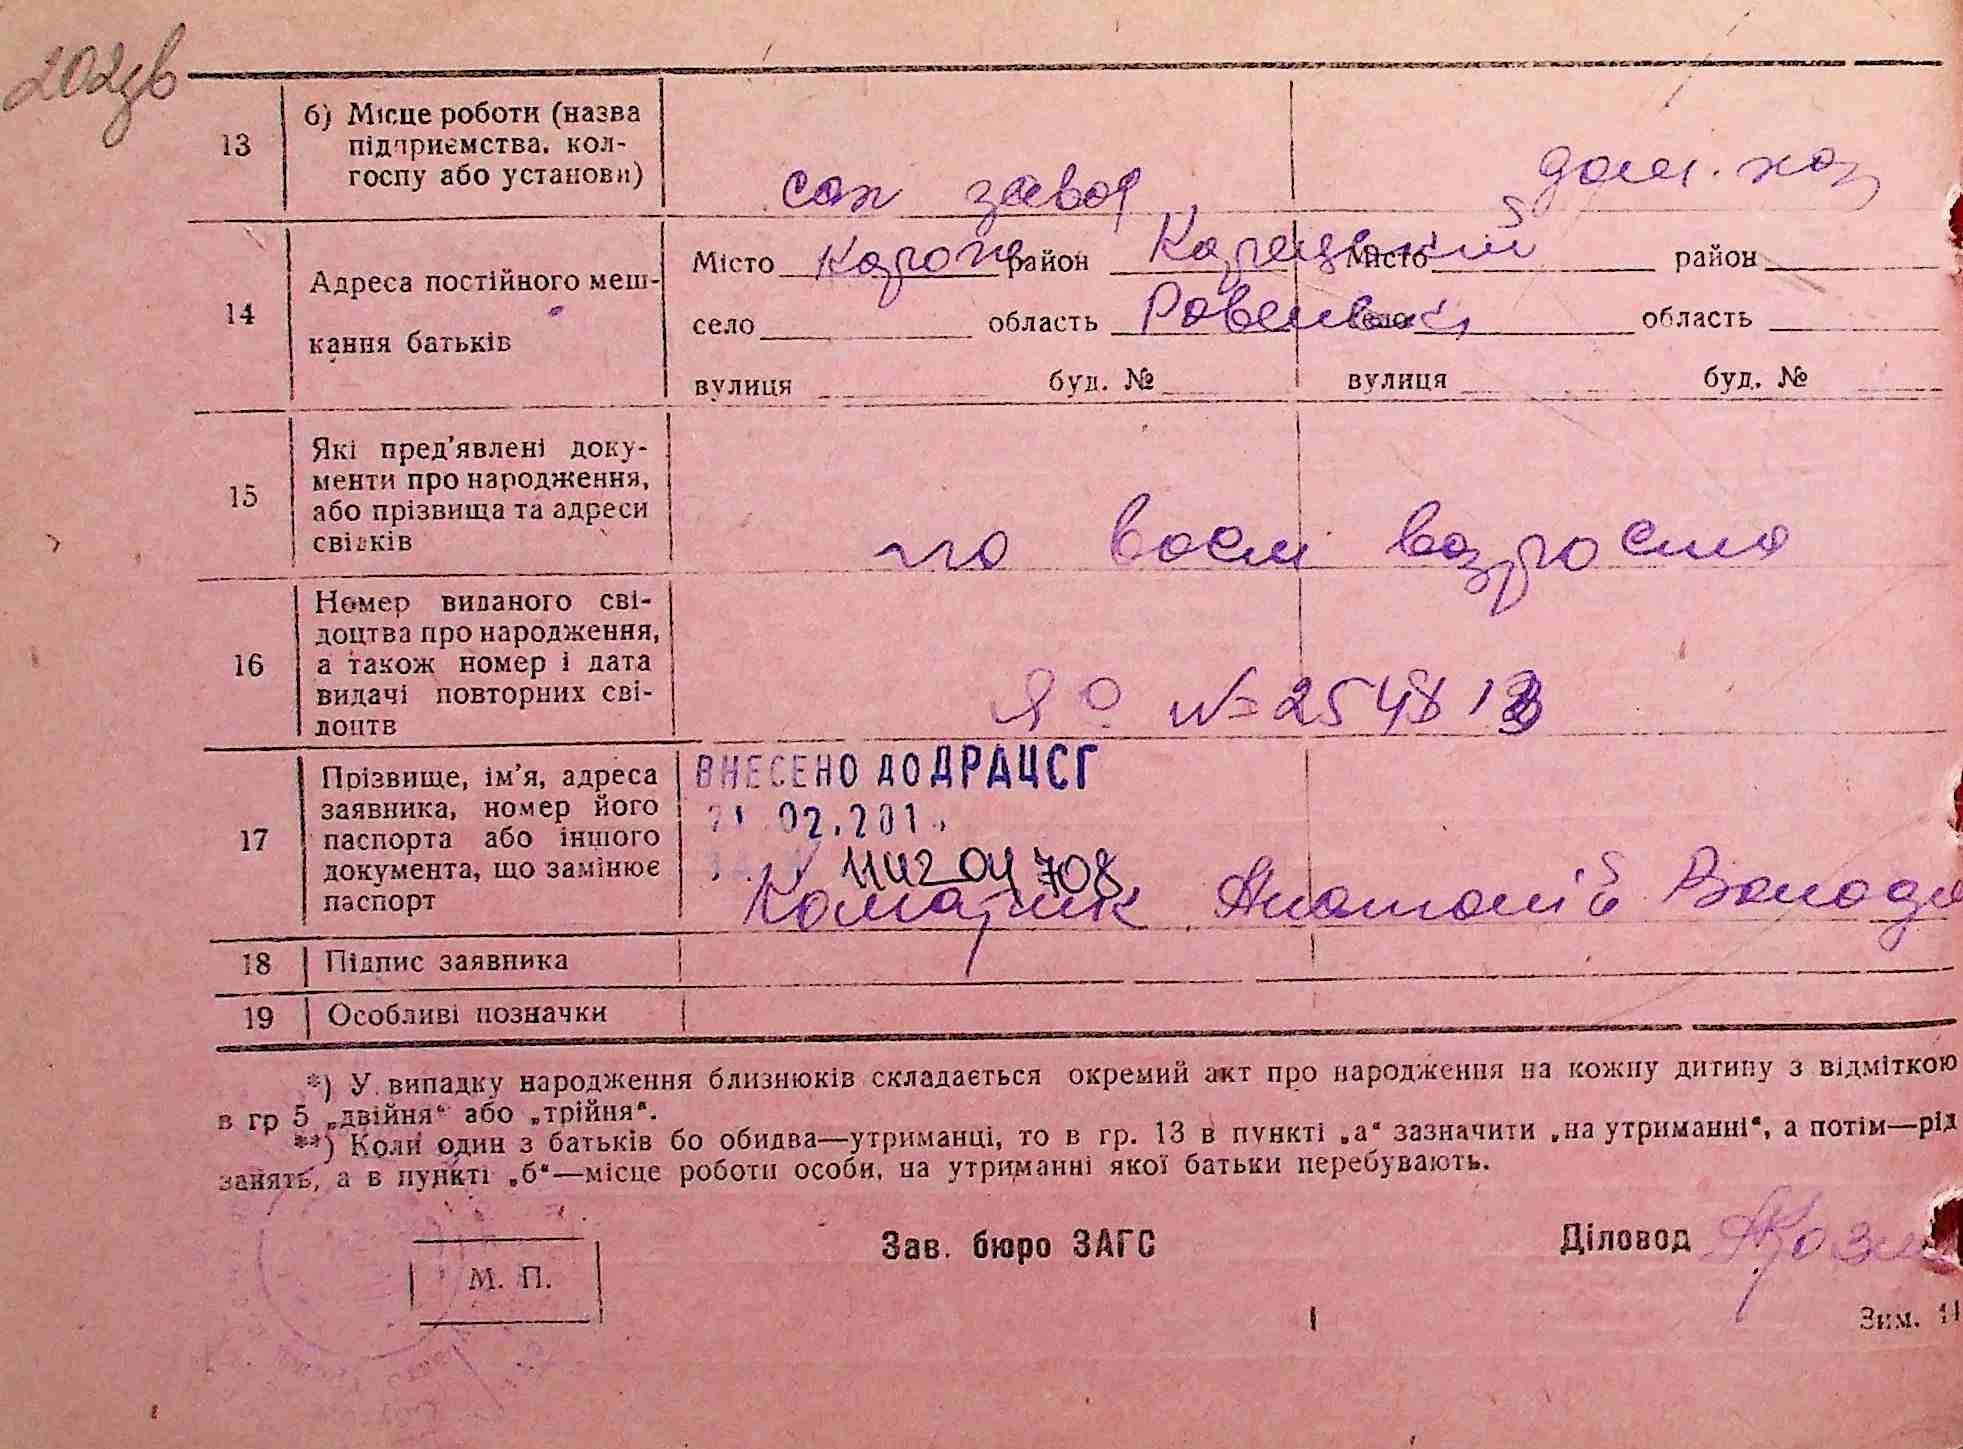 202зв
13
б) Місце роботи (назва
підприємства, кол-
госпу або установи)
сах завод
дом. хоз
14
Адреса постійного меш-
кання батьків
Місто Корец район Корецький Місто район
село область Ровенськ село область
вулиця буд. № вулиця буд. №
15
Які пред'явлені доку-
менти про народження,
або прізвища та адреси
свідків
по возрасту
16
Номер виданого сві-
доцтва про народження,
а також номер і дата
видачі повторних сві-
доцтв
ЯО № 254813
17
Прізвище, ім'я, адреса
заявника, номер його
паспорта або іншого
документа, що замінює
паспорт
ВНЕСЕНО ДО ДРАЦСГ
02.201
Анатолій Володи
18
Підпис заявника
19
Особливі позначки
*) У випадку народження близнюків складається окремий акт про народження на кожну дитину з відміткою
в гр 5 „двійня“ або „трійня“.
**) Коли один з батьків бо обидва—утриманці, то в гр. 13 в пункті „а“ зазначити „на утриманні“, а потім—рід
занять, а в пункті „б“—місце роботи особи, на утриманні якої батьки перебувають.
М. П.
Зав. бюро ЗАГС
Діловод
Зим.